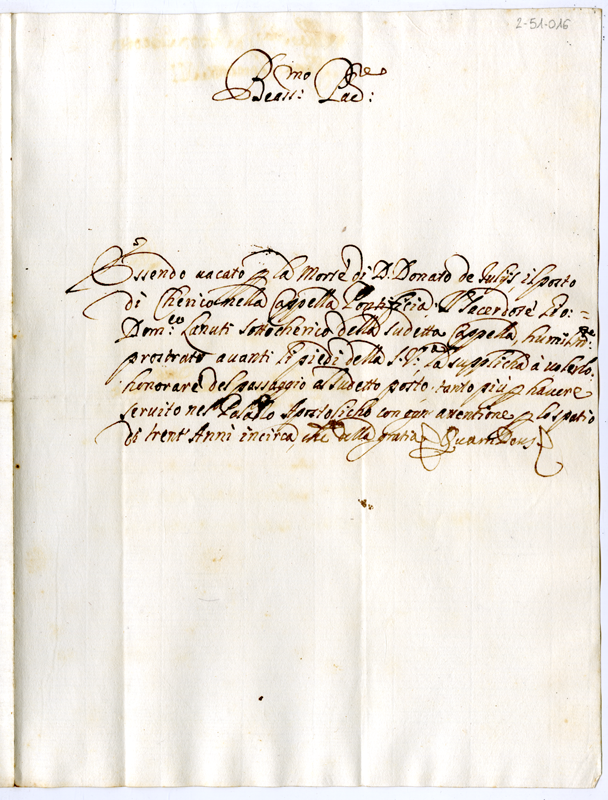 2-51-016
Beatiss:mo Pad:re
Essendo uacato p la Morte di D. Donato de Iulijs il posto
di Cherico nella Cappella Pontificia. Il Sacerdote Gio:=
Dom:co Lanuti Sottocherico della sudetta Cappella humilm:te
prostrato auanti li piedi della S.V.ra la supplicha à uolerlo
honorare del passaggio al sudetto posto tanto più p hauere
seruito nel Palazzo Apostolicho con ogni attentione p lo spatio
di trent'Anni incirca, che della gratia Quam Deus